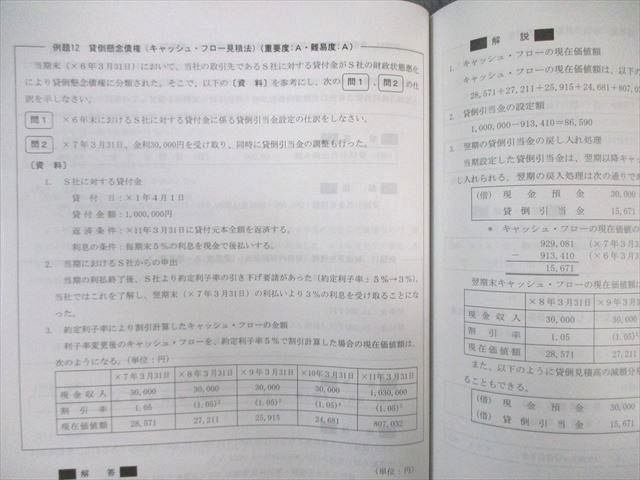 例題12 貸倒懸念債権(キャッシュ・フロー見積法)(重要度:A・難易度:A)
当期末(×6年3月31日)において、当社の取引先であるS社に対する貸付金がS社の財政状態悪化
により貸倒懸念債権に分類された。そこで、以下の〔資 料〕を参考にし、次の 問1 、 問2 の仕
訳を示しなさい。
問1 ×6年末におけるS社に対する貸付金に係る貸倒引当金設定の仕訳をしなさい。
問2 ×7年3月31日、金利30,000円を受け取り、同時に貸倒引当金の調整も行った。
〔資 料〕
1. S社に対する貸付金
貸 付 日:×1年4月1日
貸 付 金 額:1,000,000円
返 済 条 件:×11年3月31日に貸付元本全額を返済する。
利息の条件:毎期末5%の利息を現金で後払いする。
2. 当期におけるS社からの申出
当期の利払終了後、S社より約定利子率の引き下げ要請があった(約定利子率;5%→3%)。
当社ではこれを了解し、翌期末(×7年3月31日)の利払いより3%の利息を受け取ることになっ
た。
3. 約定利子率により割引計算したキャッシュ・フローの金額
利子率変更後のキャッシュ・フローを、約定利子率5%で割引計算した場合の現在価値額は、
次のようになる。(単位:円)
×7年3月31日 ×8年3月31日 ×9年3月31日 ×10年3月31日 ×11年3月31日
現 金 収 入 30,000 30,000 30,000 30,000 1,030,000
割 引 率 1.05 (1.05)² (1.05)³ (1.05)⁴ (1.05)⁵
現在価値額 28,571 27,211 25,915 24,681 807,032
解 答 (単位:円)
解 説
1. キャッシュ・フローの現在価値額
キャッシュ・フローの現在価値額は、以下の
28,571+27,211+25,915+24,681+807,03
2. 貸倒引当金の設定額
1,000,000-913,410=86,590
3. 翌期の貸倒引当金の戻し入れ処理
当期設定した貸倒引当金は、翌期以降キャ
し入れられる。翌期の戻入処理は次の通りであ
(借) 現 金 預 金 30,000
貸 倒 引 当 金 15,671
* キャッシュ・フローの現在価値の
929,081 (×7年3月3
- 913,410 (×6年3月3
15,671
翌期末キャッシュ・フローの現在価値額は
×8年3月31日 ×9年3月31
現 金 収 入 30,000 30,000
割 引 率 1.05 (1.05)
現在価値額 28,571 27,211
また、以下のように貸倒見積高の減額分
ることもできる。
(借) 現 金 預 金 30,000
(借) 貸 倒 引 当 金 15,671